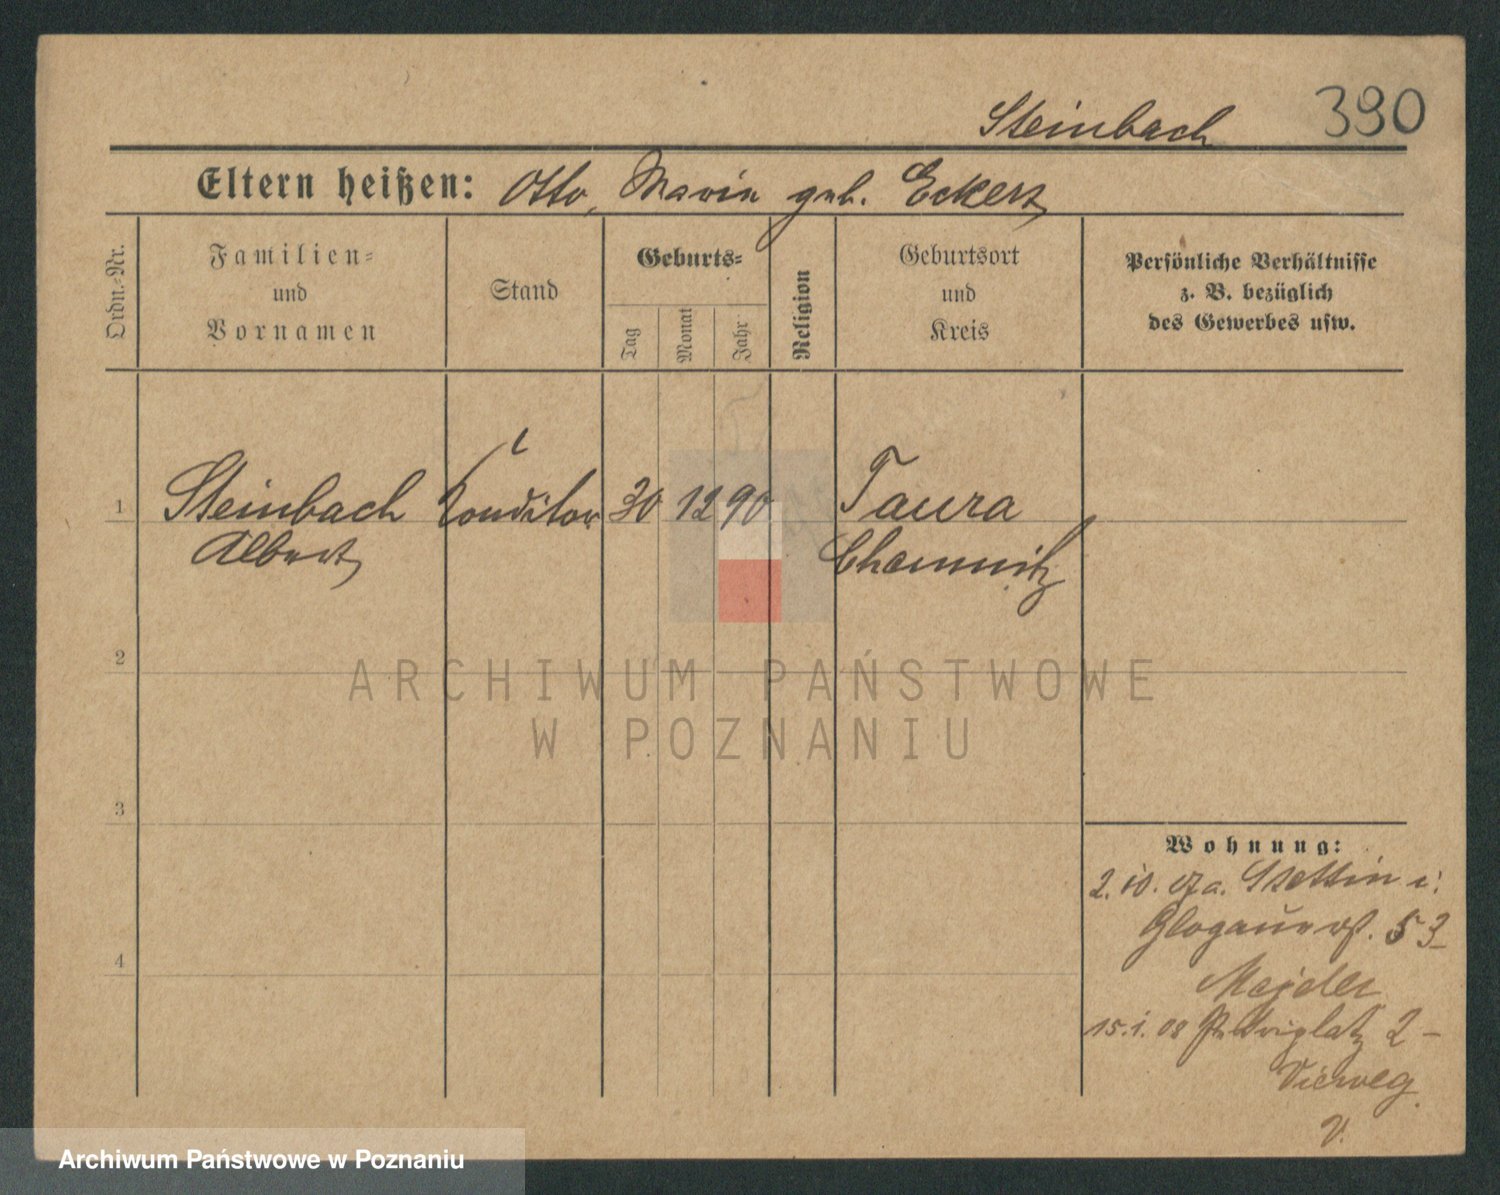 Steinbach 390
Eltern heißen: Otto, Marie geb. Eckert
Ordn.-Nr.
Familien- und Vornamen
Stand
Geburts-
Tag
Monat
Jahr
Religion
Geburtsort und Kreis
Persönliche Verhältnisse
z. B. bezüglich
des Gewerbes usw.
1 Steinbach Konditor 30 12 90 Taura
Albert Chemnitz
2
3
4
Wohnung:
2. 10. 07 a. Stettin i.
Glogauerst. 53
15. 1. 08 Petriplatz 2 –
Vierweg
V.
ARCHIWUM PAŃSTWOWE
W POZNANIU
Archiwum Państwowe w Poznaniu